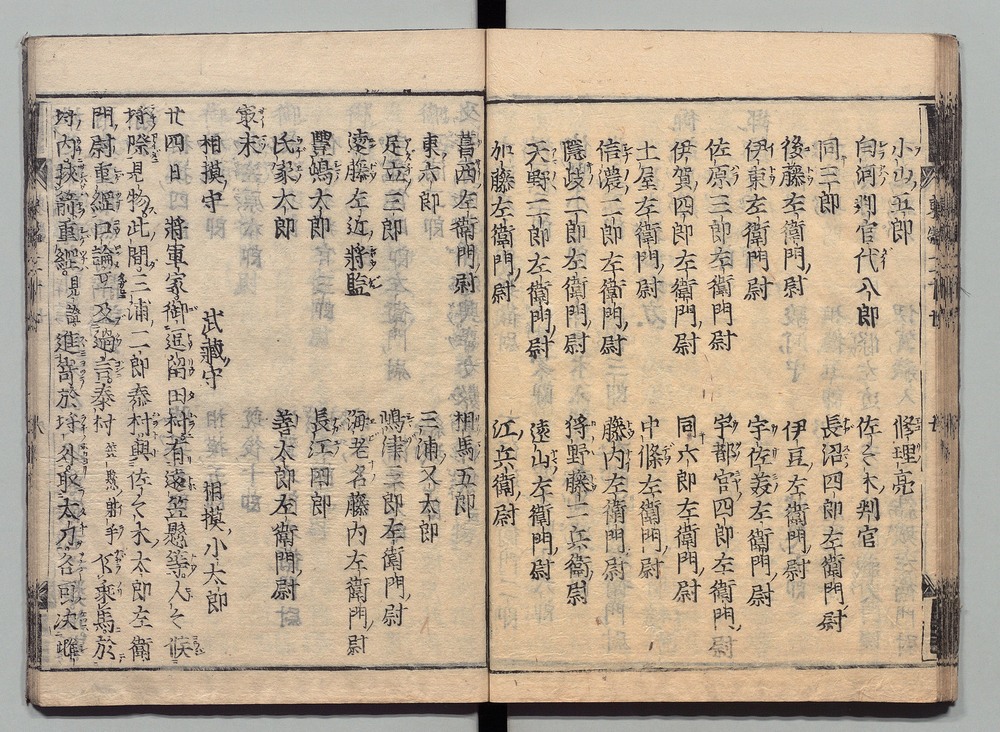 小山五郎　修理亮
白河判官代八郎　佐々木判官
同三郎　長沼四郎左衛門尉
後藤左衛門尉　伊豆左衛門尉
伊東左衛門尉　宇佐美左衛門尉
佐原三郎左衛門尉　宇都宮四郎左衛門尉
伊賀四郎左衛門尉　同六郎左衛門尉
土屋左衛門尉　中條左衛門尉
信濃二郎左衛門尉　藤内左衛門尉
隱岐二郎左衛門尉　狩野藤二兵衛尉
天野二郎左衛門尉　遠山左衛門尉
加藤左衛門尉　江兵衛尉
葛西左衛門尉　相馬五郎
東六郎　三浦又太郎
足立三郎　嶋津三郎左衛門尉
遠藤左近將監　海老名藤内左衛門尉
豐嶋太郎　長江四郎
氏家太郎　善太郎左衛門尉
最末
相摸守　武藏守　相摸小太郎
廿四日　將軍家御逗留田村有遠笠懸等人々候
埒際見物此間三浦二郎泰村與佐々木太郎左衛
門尉重經口論互及過言泰村笠懸射手乍乘馬於
埒内挾箭重經見證進寄於埒外取太刀召可決雌